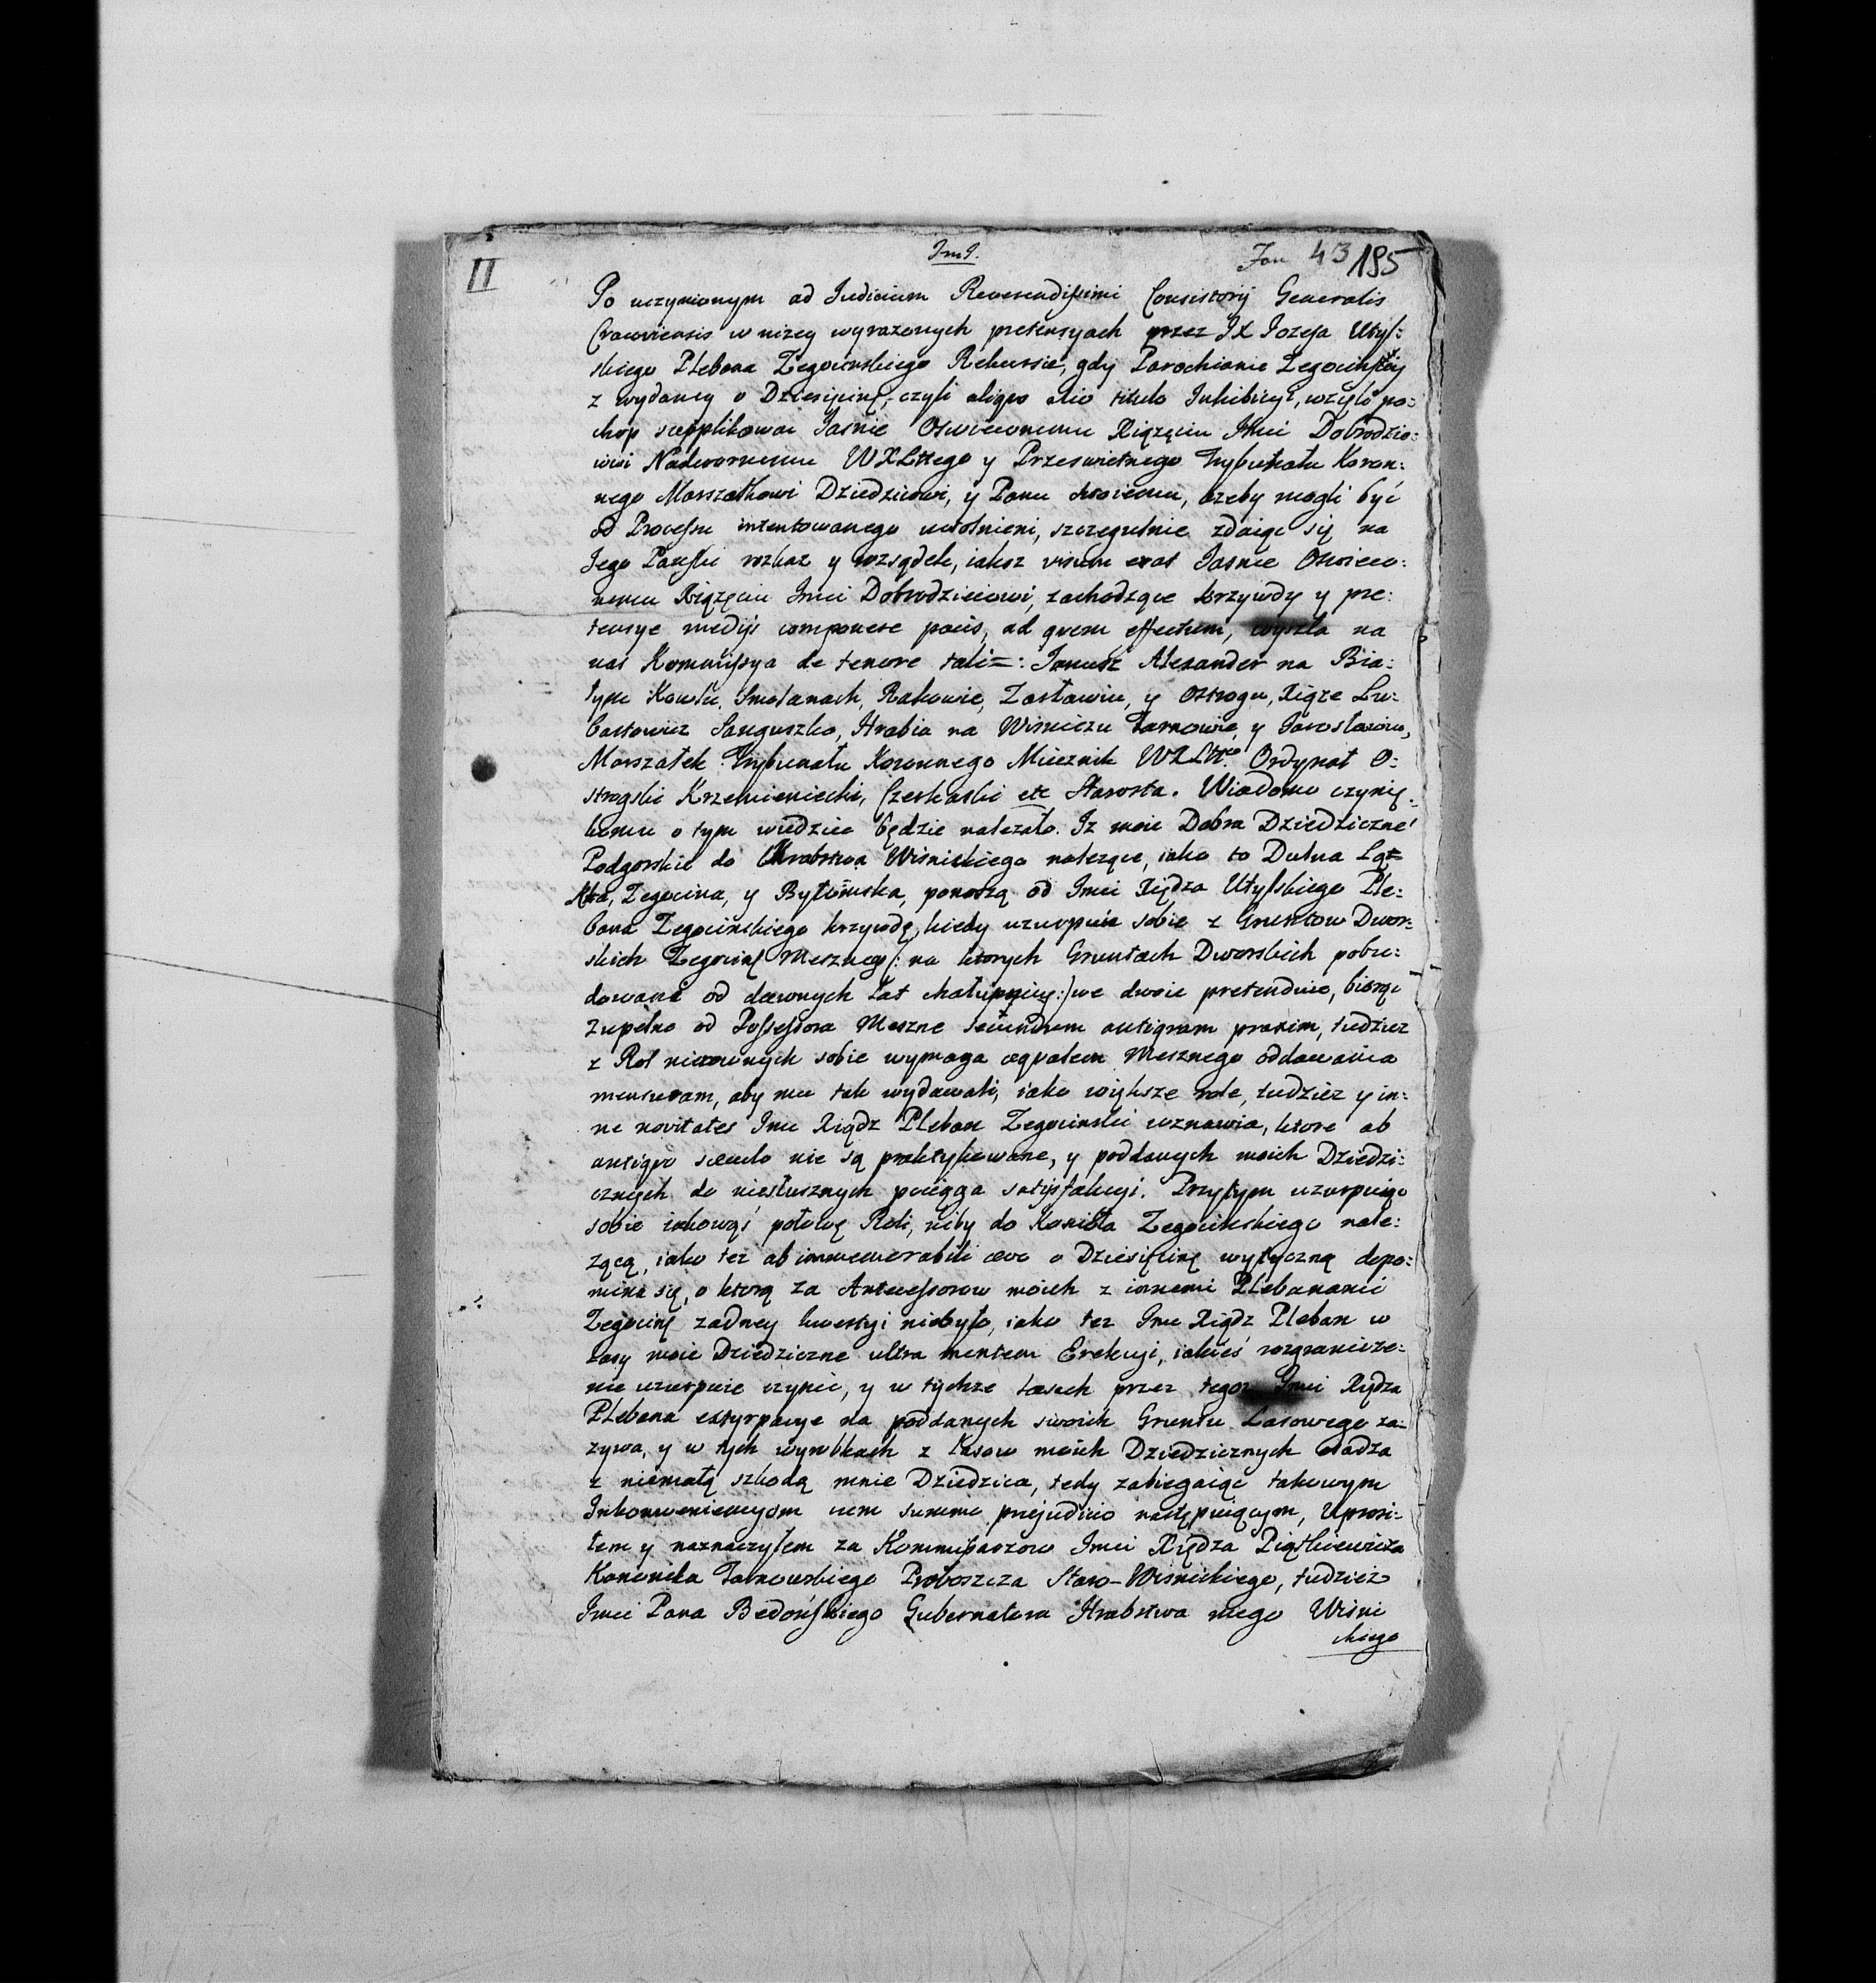 II
ImJ.
Fon 43 195
Po uczynionym ad Iudicium Reverendissimi Consistorij Generalis
Cracoviensis w nizey wyrazonych pretensyach przez IX Iozefa Utys:
skiego Plebana Zegocinskiego Rekursie, gdy Parochianie Zegocinscy
z wydaney o Dziesięcinę, czyli aliquo alio titulo Inhibicyi, wzięli po:
chop supplikowac Jasnie Oswieconemu Xiążęciu Jmci Dobrodzie:
iowi Nadwornemu WXLittego y Przeswietnego Trybunału Koron:
nego Marszałkowi Dziedzicowi, y Panu swoiemu, azeby mogli być
od Processu intentowanego uwolnieni, szczegulnie zdaiąc się na
Jego Pański rozkaz y rozsądek, iakoz visum erat Jasnie Oswieco:
nemu Xiążęciu Jmci Dobrodzieiowi, zachodzące krzywdy y pre:
tensye medijs componere pacis, ad quem effectum, wyszła na
nas Kommissya de tenore tali=: Janusz Alexander na Bia:
łym Kowlu, Smolanach, Rakowie, Zasławiu, y Ostrogu, Xiąże Lu:
bartowicz Sanguszko, Hrabia na Wisniczu Tarnowie, y Jarosławiu,
Marszałek Trybunału Koronnego Miecznik WXLitt. Ordynat O:
strogski Krzemieniecki, Czerkaski etc Starosta. Wiadomo czynię
komu o tym wiedziec będzie nalezało. Iz moie Dobra Dziedziczne
Podgorskie do Hrabstwa Wisnickiego nalezące, iako to Dulna Łąt=
kta, Zegocina, y Bytomska, ponoszą od Jmci Xiędza Utyskiego Ple:
bana Zegocinskiego krzywdę, kiedy uzurpuie sobie z Gruntow Dwor:
skich Zegociny Meszney /: na ktorych Gruntach Dworskich pobu:
dowani od dawnych Lat chałupnicy :/ we dwoie pretenduie, biorąc
zupełne od Possessora Meszne secundum antiquam praxim, tudziez
z Rol nierownych sobie wymaga aequalem Mesznego oddawania
mensuram, aby mu tak wydawali, iako większe role, tudziez y in:
ne novitates Jmc Xiądz Pleban Zegocinski wznawia, ktore ab
antiquo saeculo nie są praktykowane, y poddanych moich Dziedzi:
cznych do niesłusznych pociąga satysfakcyi. Przytym uzurpuiąc
sobie iakowąś połowę Roli, niby do Koscioła Zegocinskiego nale:
żącą, iako tez ab immemorabili aevo o Dziesięcinę wytyczną dopo:
mina się, o ktorą za Antecessorow moich z innemi Plebanami
Zegociny zadney kwestyi niebyło, iako tez Jmc Xiądz Pleban w
Lasy moie Dziedziczne ultra mentem Erekcyi, iakieś rozgranicze:
nie uzurpuie czynić, y w tychze Lasach przez tegoz Jmci Xiędza
Plebana extyrpacye na poddanych swoich Gruntu Lasowego za:
zywa, y w tych wyrobkach z Lasow moich Dziedzicznych osadza
z niemałą szkodą mnie Dziedzica, tedy zabiegaiąc takowym
Inkonweniencyom cum summo prejudicio następuiącym, Uprosi:
łem y naznaczyłem za Kommissarzow Jmci Xiędza Piątkiewicza
Kanonika Tarnowskiego Proboszcza Staro-Wisnickiego, tudziez
Jmci Pana Bedońskiego Gubernatora Hrabstwa mego Wisni
ckiego